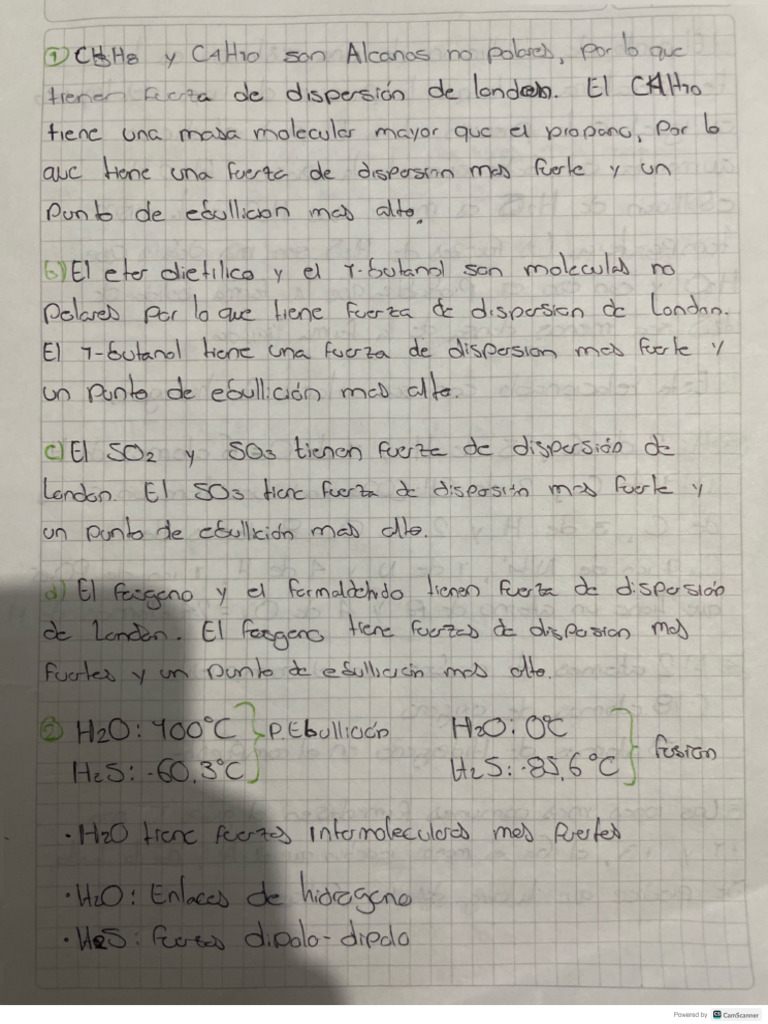 ① C3H8 y C4H10 son Alcanos no polares, por lo que
tienen fuerza de dispersión de london. El C4H10
tiene una masa molecular mayor que el propano, Por lo
que tiene una fuerza de dispersion mas fuerte y un
Punto de ebullicion mas alto.
b) El eter dietilico y el 1-butanol son moleculas no
Polares por lo que tiene fuerza de dispersion de London.
El 1-butanol tiene una fuerza de dispersion mas fuerte y
un Punto de ebullición mas alto.
c) El SO2 y SO3 tienen fuerza de dispersión de
London. El SO3 tiene fuerza de dispersión mas fuerte y
un punto de ebullición mas alto.
d) El fosgeno y el formaldehido tienen fuerza de dispersión
de London. El fosgeno tiene fuerzas de dispersion mas
fuertes y un punto de ebullición mas alto.
② H2O: 100°C } P. Ebullición H2O: 0°C } fusion
H2S: -60.3°C H2S: -85,6°C
• H2O tiene fuerzas intermoleculares mas fuertes
• H2O: Enlaces de hidrogeno
• H2S: fuerzas dipolo-dipolo
Powered by CS CamScanner